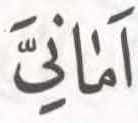 اَمَانِيَّ